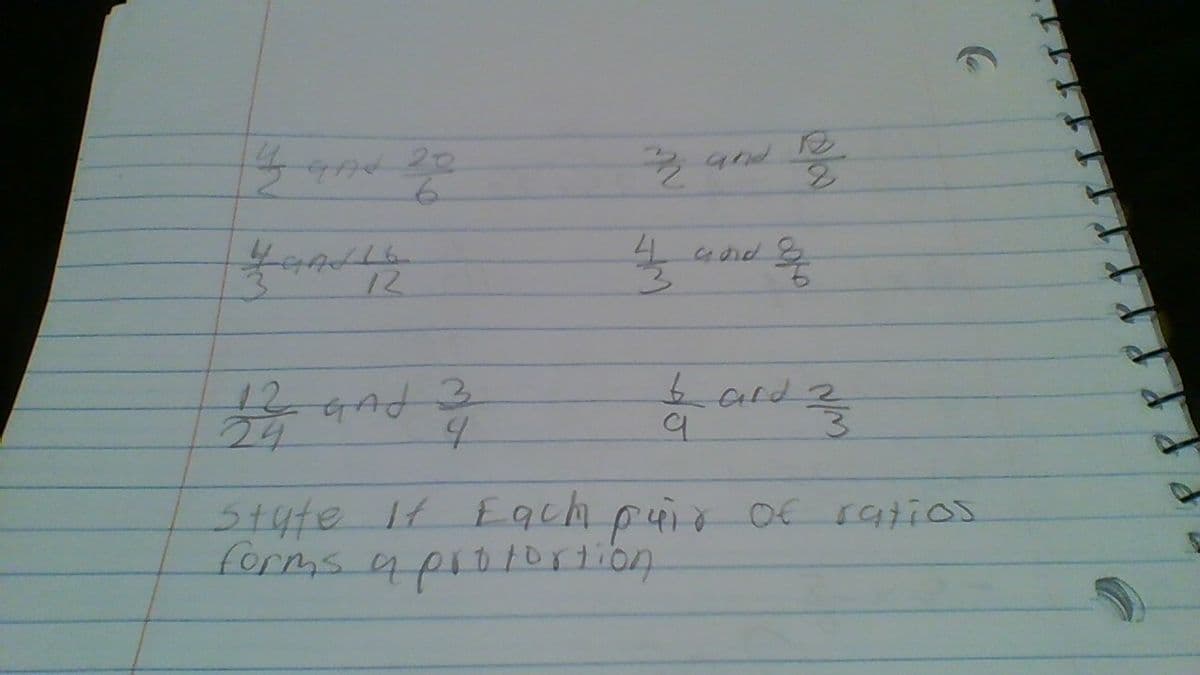 4/2 and 20/6    3/2 and 18/8
4/3 and 16/12    4/3 and 8/6
12/24 and 3/4    6/9 and 2/3
State If Each pair of ratios
forms a proportion